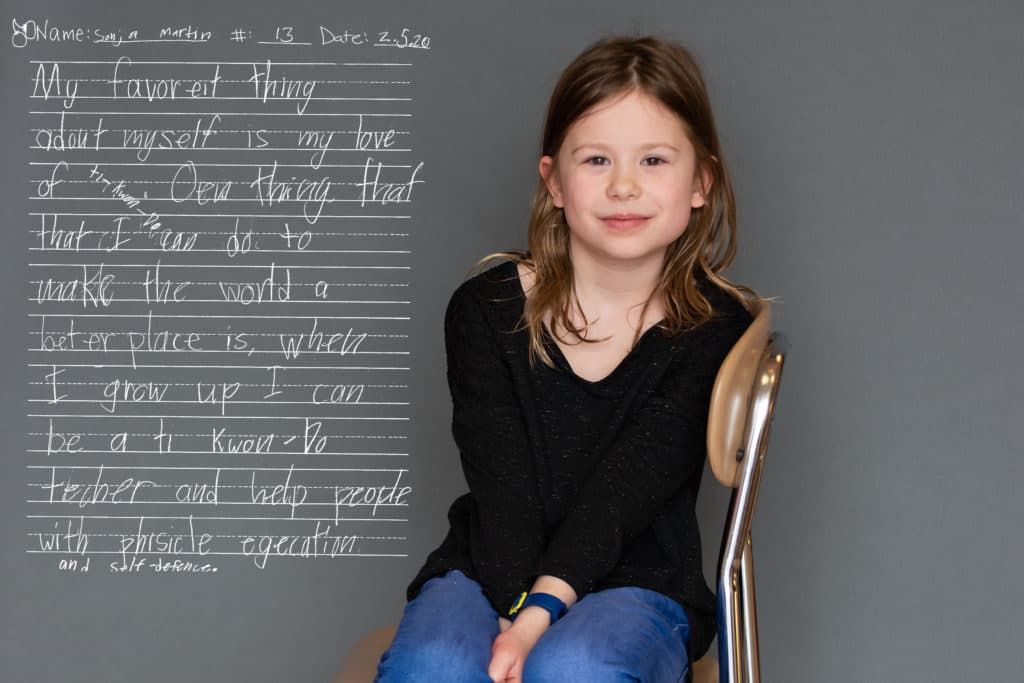 Name: Sonja Martin #: 13 Date: 2.5.20
My favoreit thing
adout myself is my love
of ti-Kwon-Do. Oen thing that
that I can do to
make the world a
beter place is, when
I grow up I can
be a ti Kwon-Do
techer and help people
with phisicle egecation
and self-defence.